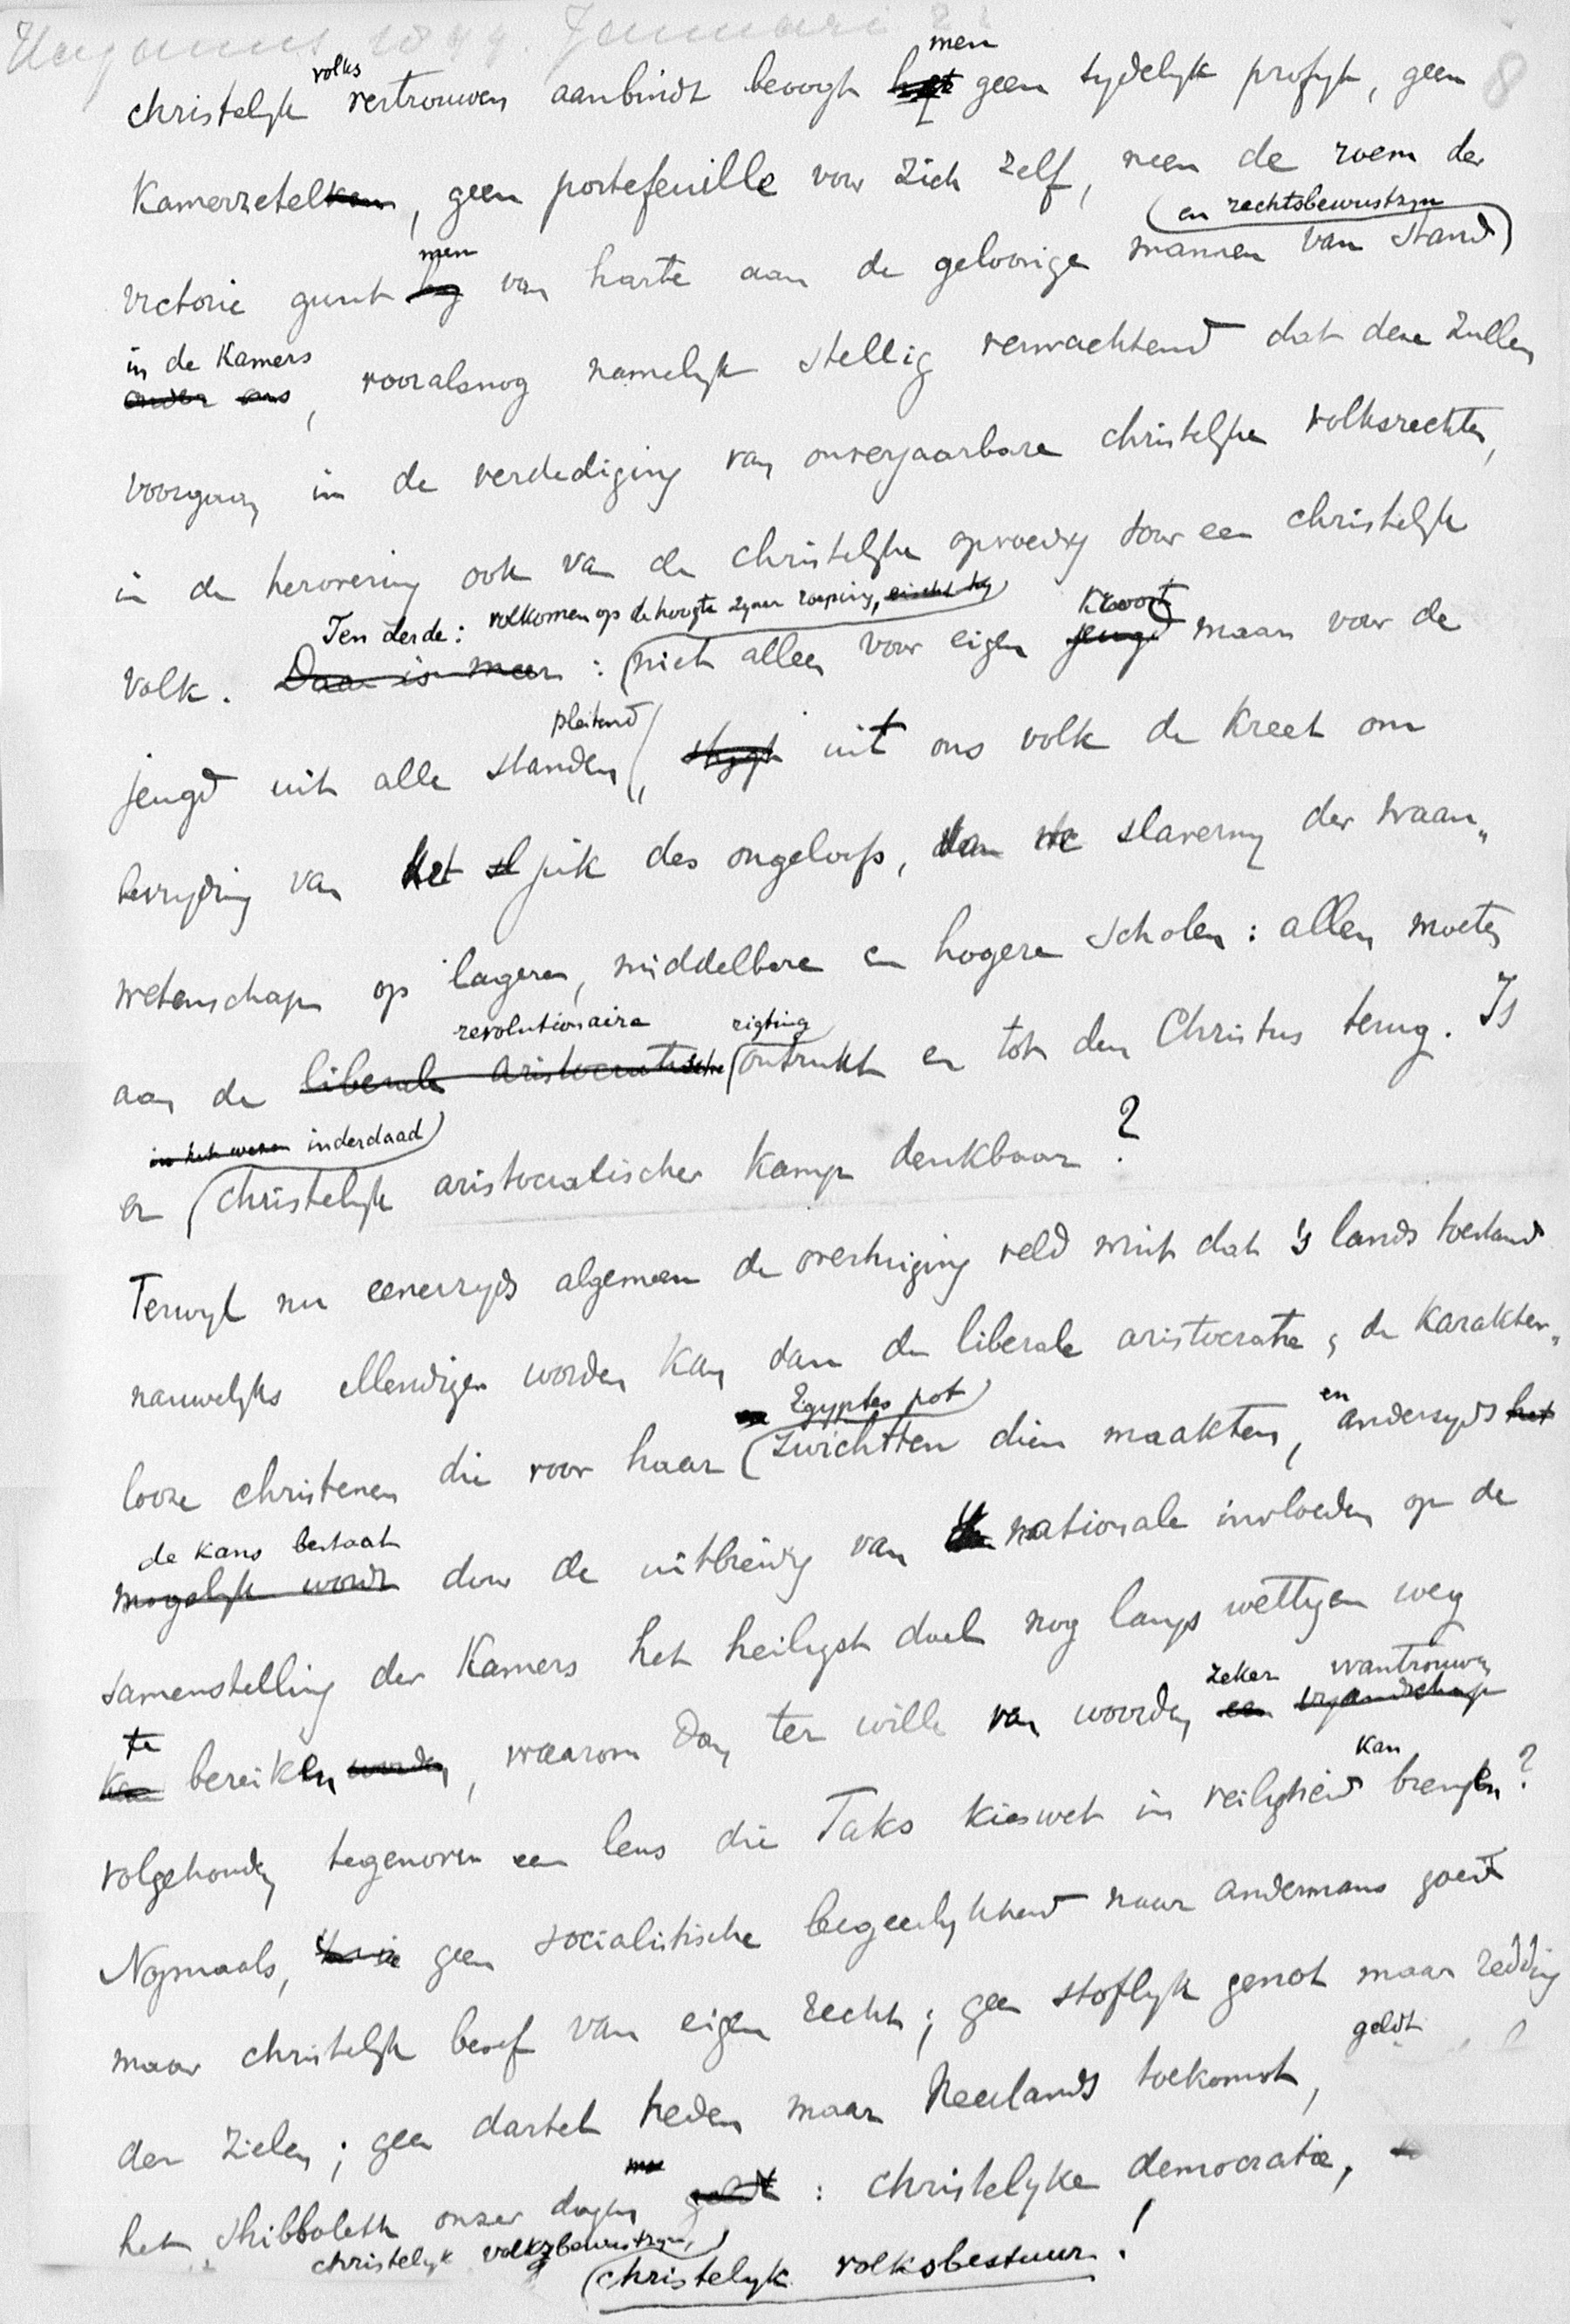 Januari
8
christelyk volks vertrouwen aanbindt beoogt het men geen tydelyk profyt, geen
Kamerzetelken, geen portefeuille voor zich zelf, neen de roem der
victorie gunt hy men van harte aan de geloovige mannen van stand en rechtsbewustzyn
onder ons in de Kamers, vooralsnog namelyk stellig verwachtend dat deze zullen
voorgaan in de verdediging van onverjaarbare christelyke volksrechten,
in de herovering ook van de christelyke opvoeding door een christelyk
volk. Daar is meer Ten derde: volkomen op de hoogte zyner roeping, niet alleen voor eigen jeugd kroost maar voor de
jeugd uit alle standen pleitend, stygt uit ons volk de kreet om
bevryding van het juk des ongeloofs, van de slaverny der waan„
wetenschap op lagere, middelbare en hogere scholen: allen moeten
aan de liberale aristocratische revolutionaire rigting ontrukt en tot den Christus terug. Is
er in het wezen inderdaad christelyk aristocratischer kamp denkbaar?
Terwyl nu eenerzyds algemeen de overtuiging veld wint dat 's lands toestand
nauwelyks ellendiger worden kan dan de liberale aristocratie, de karakter„
looze christenen die voor haar en Egyptes pot zwichtten dien maakten, en anderzyds het
mogelyk wordt de kans bestaat door de uitbreiding van de nationale invloeden op de
samenstelling der Kamers het heiligst doel nog langs wettigen weg
kan te bereiken worden, waarom dan ter wille van woorden een vyandschap zeker wantrouwen
volgehouden tegenover een leus die Taks kieswet in veiligheid kan brengen?
Nogmaals, geen socialistische begeerlykheid naar andermans goed
maar christelyk besef van eigen recht; geen stoflyk genot maar redding
der zielen; geen dartel heden maar Neerlands toekomst, geldt
het Shibboleth onzer dagen geldt: christelyke democratie,
christelyk volksbewustzyn, christelyk volksbestuur!